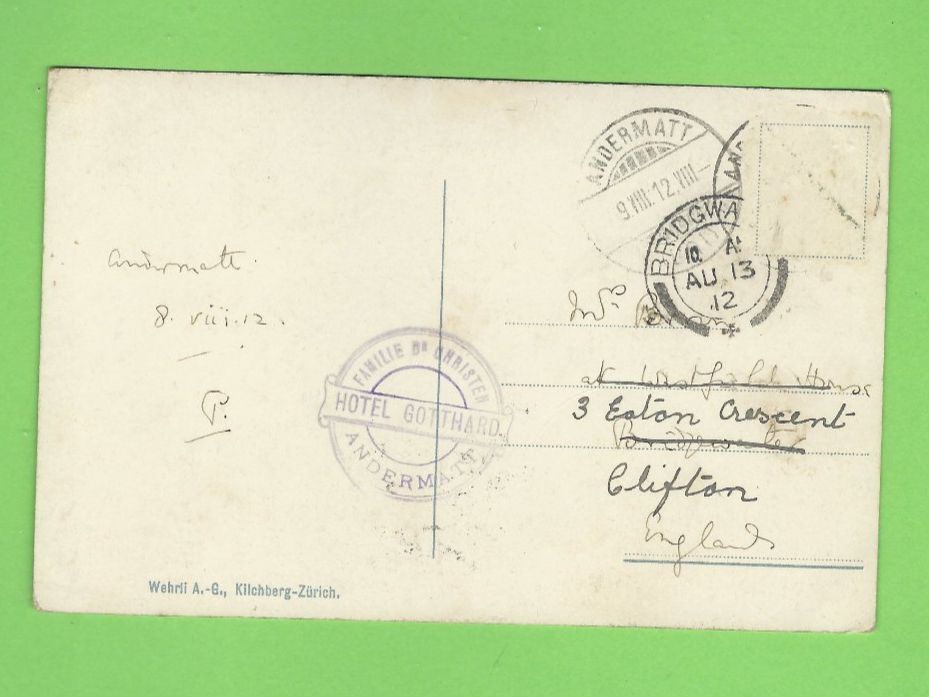 Andermatt.
8. viii. 12.
P.
FAMILIE Dr CHRISTEN
HOTEL GOTTHARD
ANDERMATT
Wehrli A.-G., Kilchberg-Zürich.
ANDERMATT
9.VIII.12.VIII
AND
BRIDGWA
AU 13
12
at Westfield House
3 Eaton Crescent
Bridgwater
Clifton
England